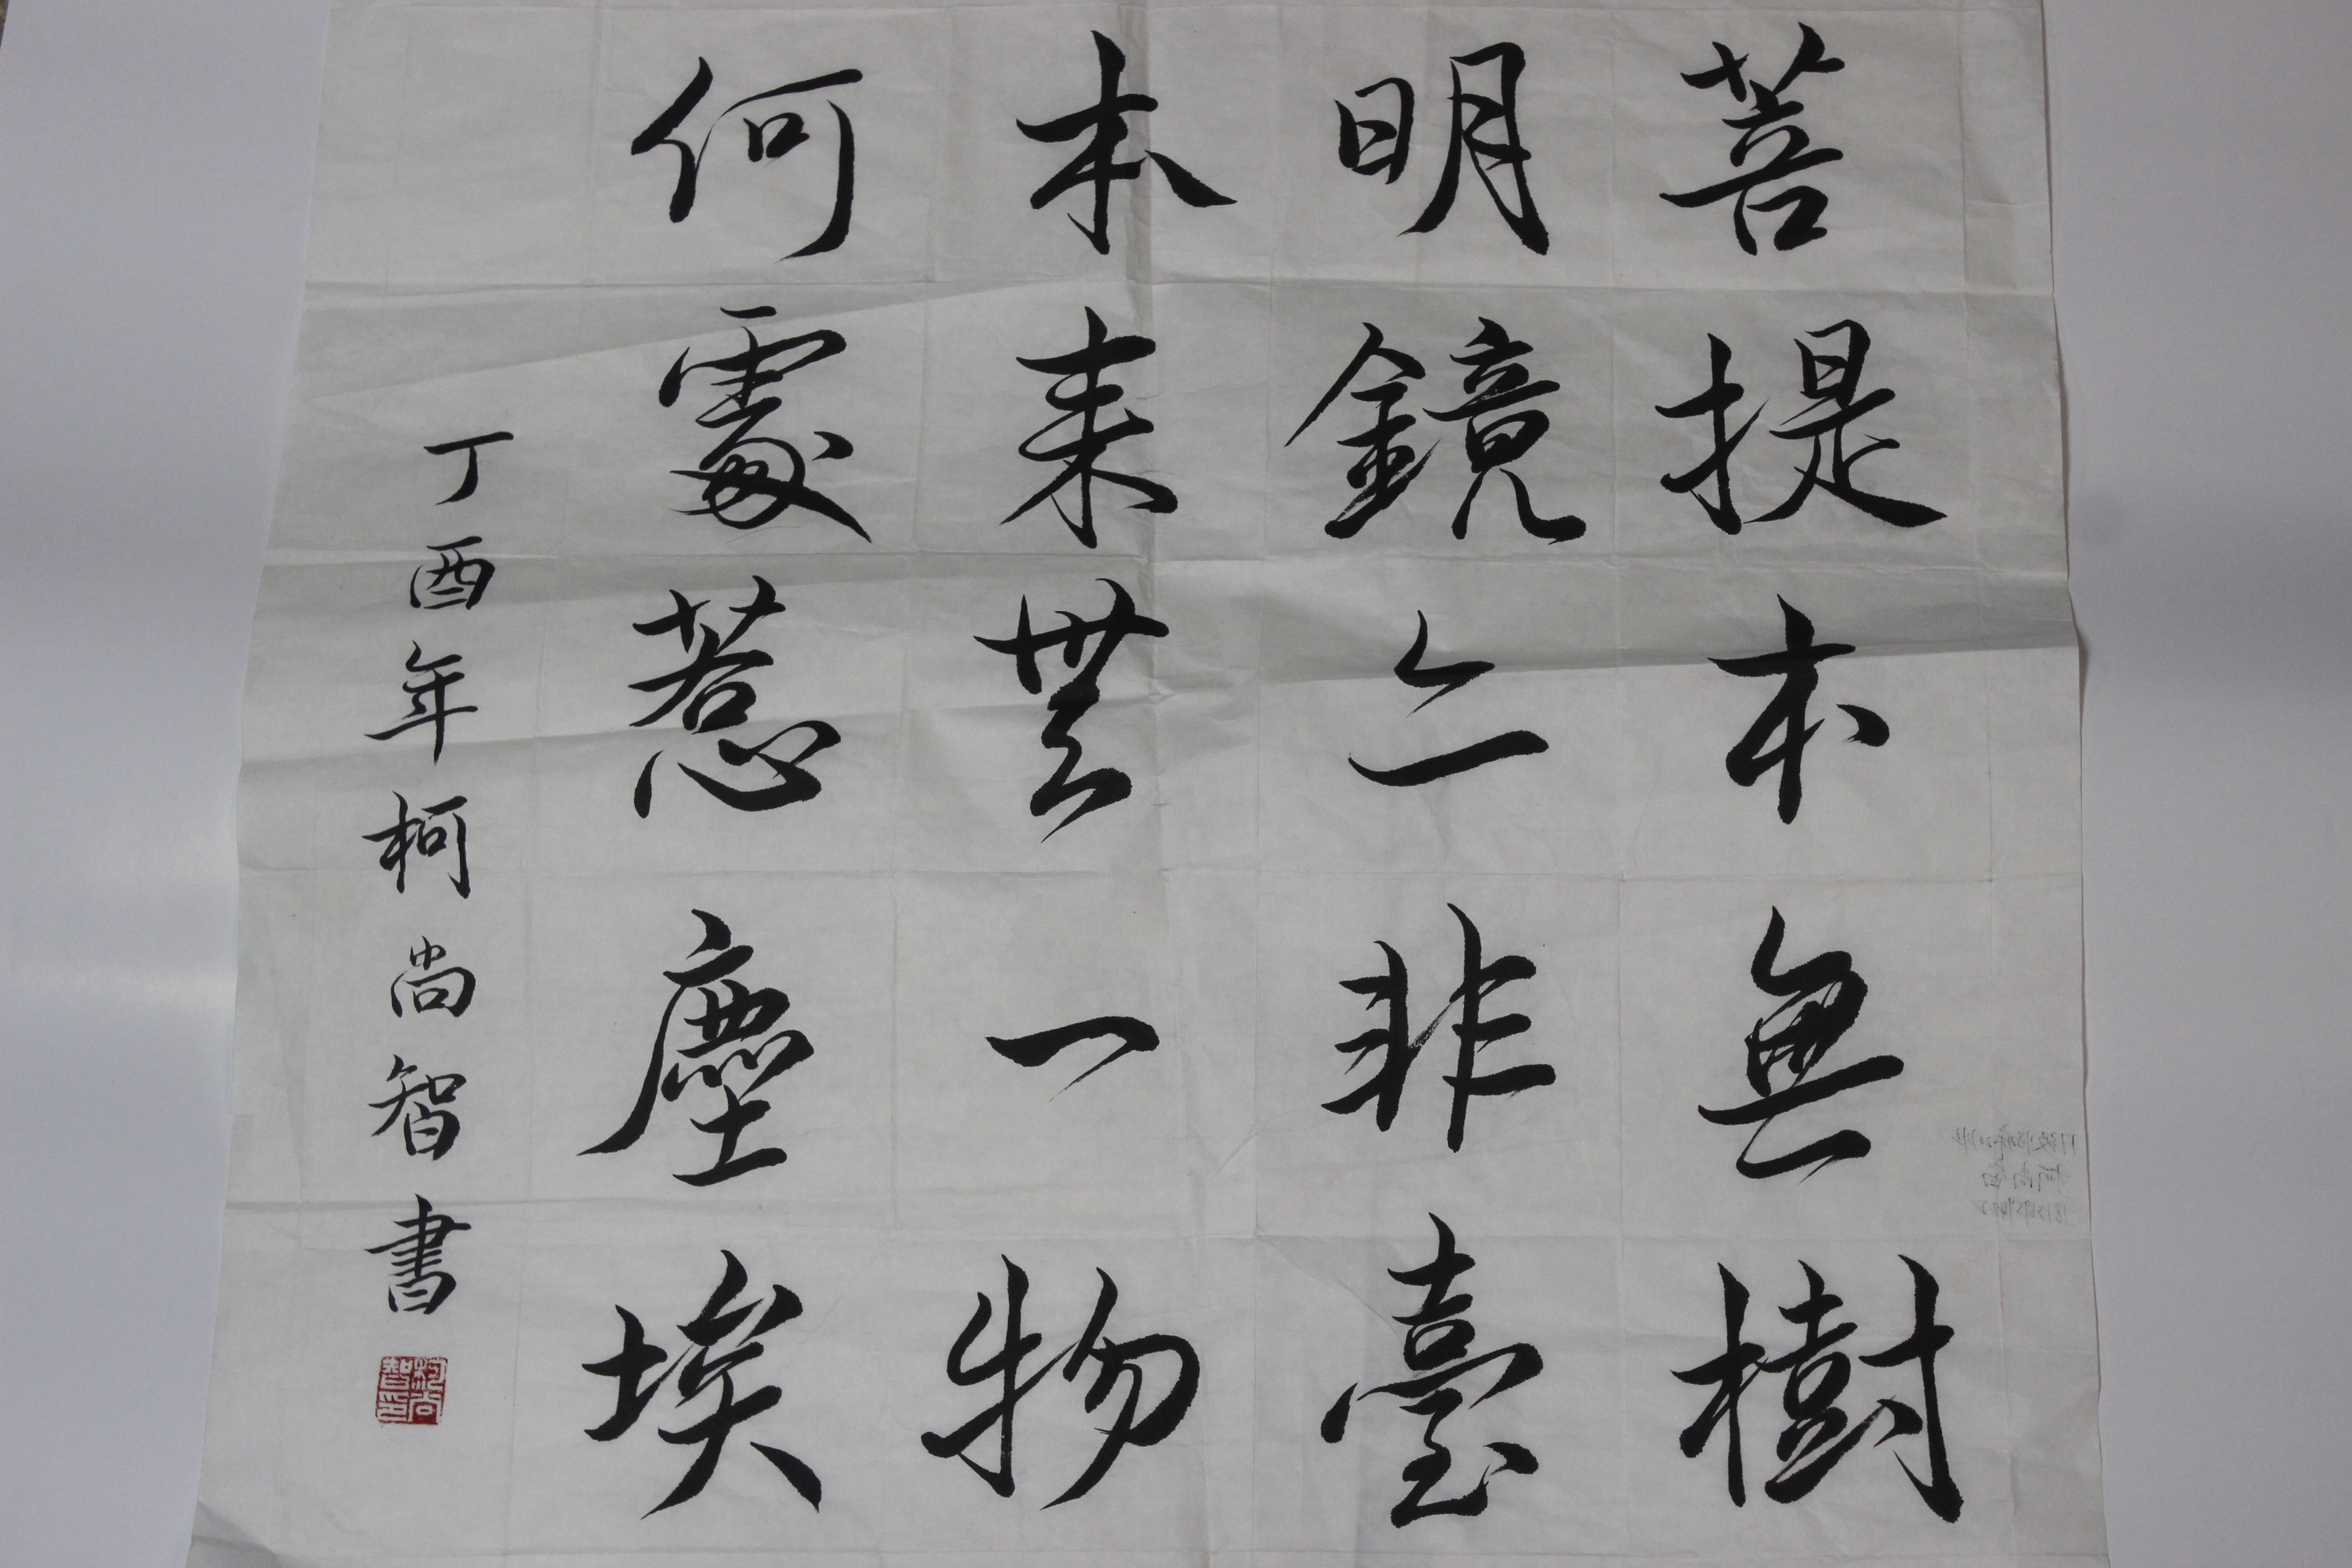 菩提本無樹
明鏡亦非臺
本来無一物
何處惹塵埃
丁酉年柯尚智書
柯尚智印